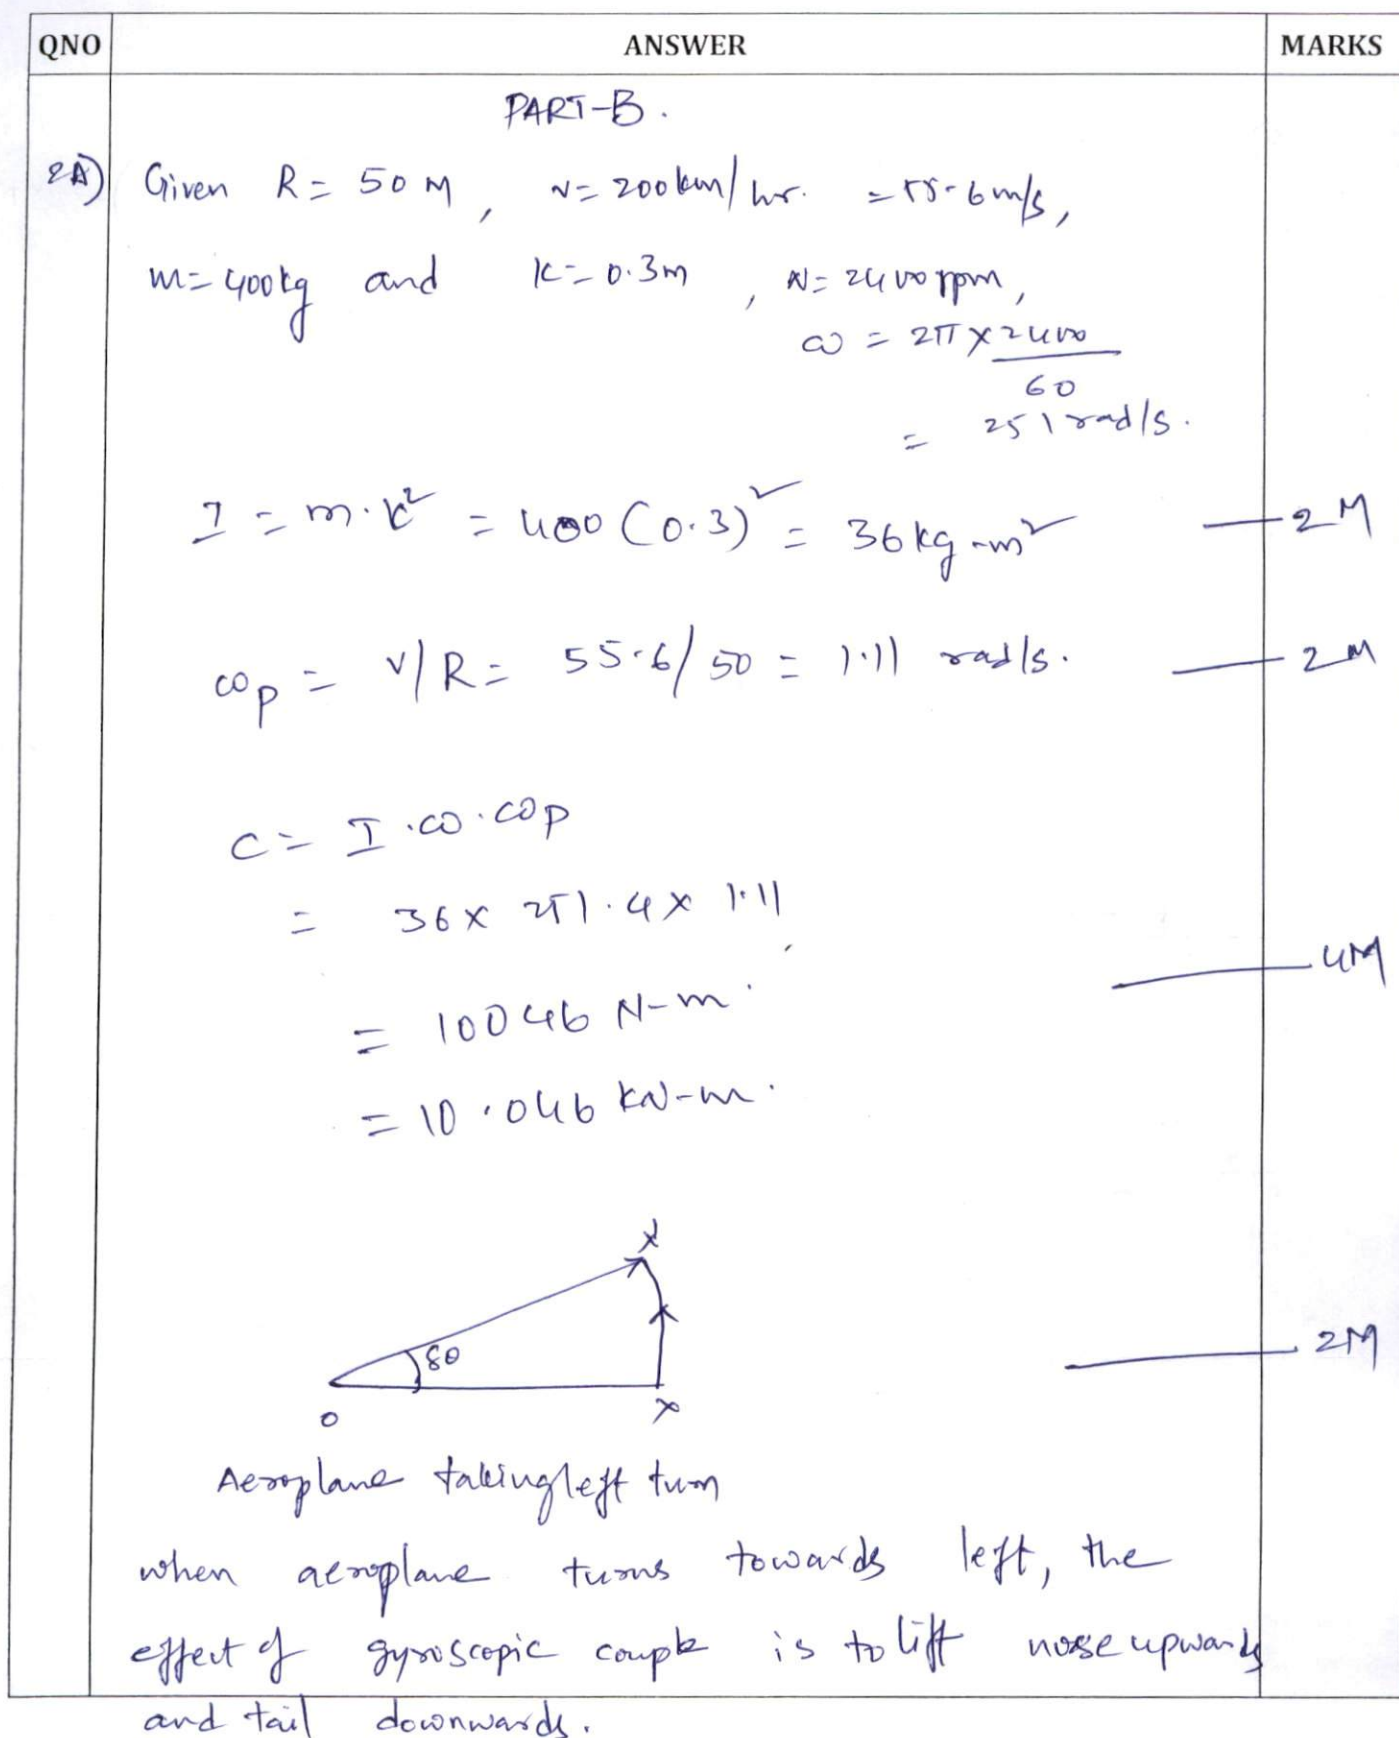 QNO ANSWER MARKS
PART-B.
2A) Given R = 50 M, v = 200 km/hr. = 55.6 m/s,
m = 400kg and K = 0.3m, N = 2400 rpm,
ω = 2π × 2400
60
= 251 rad/s.
I = m.k² = 400 (0.3)² = 36 kg-m² — 2M
ωp = v/R = 55.6/50 = 1.11 rad/s. — 2M
C = I.ω.ωp
= 36 × 251.4 × 1.11
— 4M
= 10046 N-m.
= 10.046 kN-m.
x
δθ — 2M
o x
Aeroplane taking left turn
when aeroplane turns towards left, the
effect of gyroscopic couple is to lift nose upwards
and tail downwards.